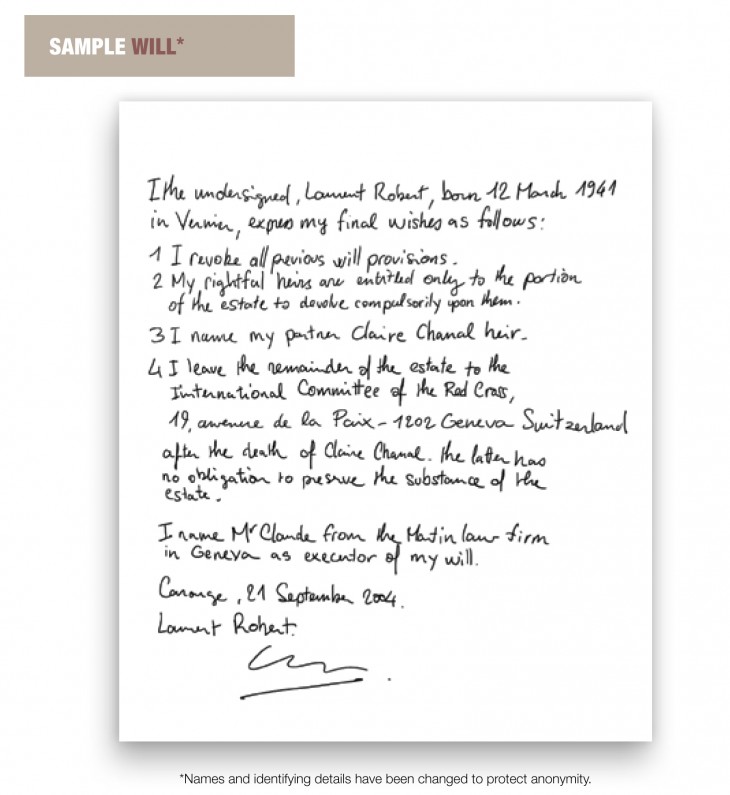 SAMPLE WILL*
I the undersigned, Laurent Robert, born 12 March 1941
in Vernier, express my final wishes as follows:
1 I revoke all previous will provisions.
2 My rightful heirs are entitled only to the portion
of the estate to devolve compulsorily upon them.
3 I name my partner Claire Chanal heir.
4 I leave the remainder of the estate to the
International Committee of the Red Cross,
19, avenue de la Paix - 1202 Geneva Suitzerland
after the death of Claire Chanal. the latter has
no obligation to preserve the substance of the
estate.
I name Mr Claude from the Martin law firm
in Geneva as executor of my will.
Carouge, 21 September 2004.
Laurent Robert.
*Names and identifying details have been changed to protect anonymity.